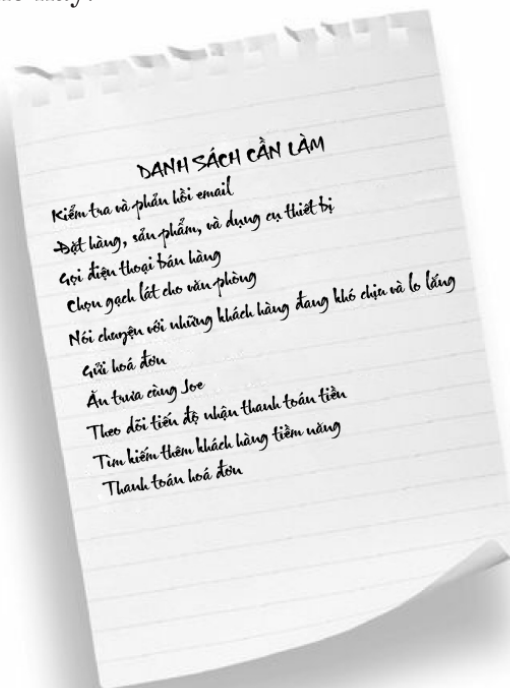 DANH SÁCH CẦN LÀM
Kiểm tra và phản hồi email
Đặt hàng, sản phẩm, và dụng cụ thiết bị
Gọi điện thoại bán hàng
Chọn gạch lát cho văn phòng
Nói chuyện với những khách hàng đang khó chịu và lo lắng
Gửi hoá đơn
Ăn trưa cùng Joe
Theo dõi tiến độ nhận thanh toán tiền
Tìm kiếm thêm khách hàng tiềm năng
Thanh toán hoá đơn